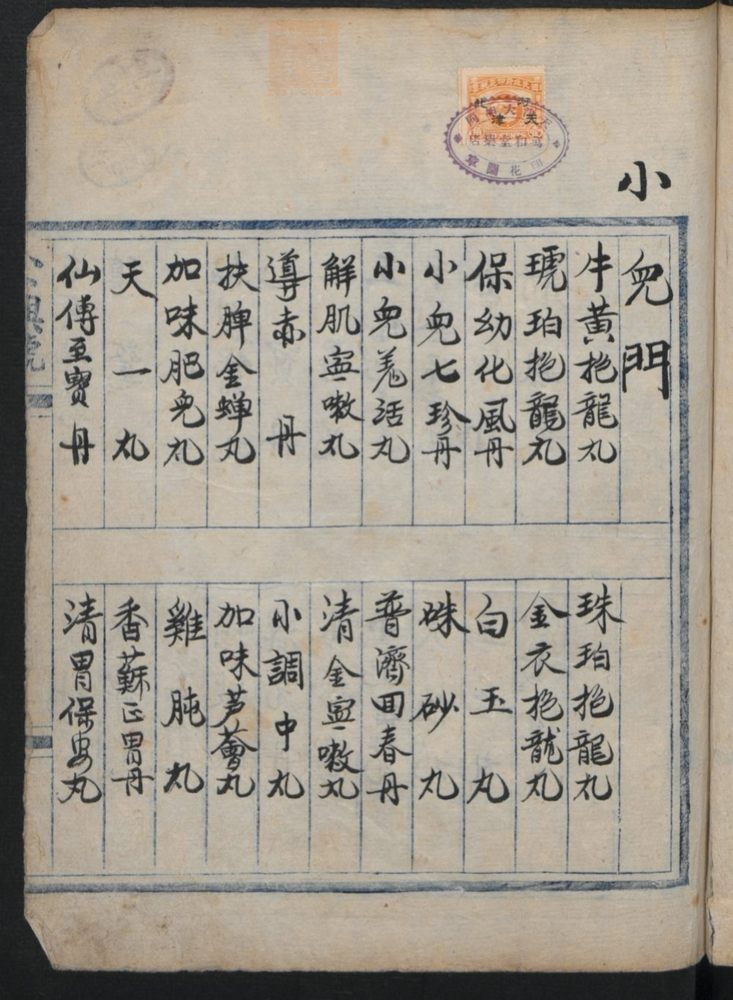 小
兒門
牛黃抱龍丸
琥珀抱龍丸
保幼化風丹
小兒七珍丹
小兒羗活丸
解肌寧嗽丸
導赤丹
扶脾金蟬丸
加味肥兒丸
天一丸
仙傳至寶丹
珠珀抱龍丸
金衣抱龍丸
白玉丸
硃砂丸
普濟回春丹
清金寧嗽丸
小調中丸
加味芦薈丸
雞肫丸
香蘇正胃丹
清胃保安丸